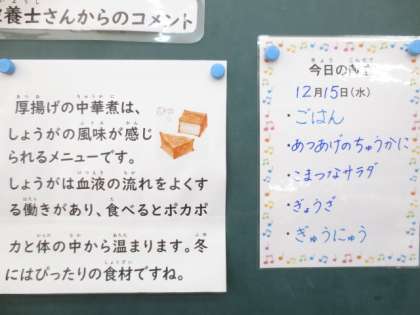 養士さんからのコメント
厚揚げの中華煮は、
しょうがの風味が感じ
られるメニューです。
しょうがは血液の流れをよくす
る働きがあり、食べるとポカポ
カと体の中から温まります。冬
にはぴったりの食材ですね。
今日の
12月15日(水)
・ごはん
・あつあげのちゅうかに
・こまつなサラダ
・ぎょうざ
・ぎゅうにゅう